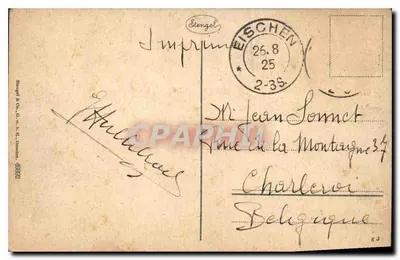 Stengel
Imprimé
EISCHEN
26.8
25
2-3S.
Mr Jean Sonnet
Rue de la Montagne 37
Charleroi
Belgique
Stengel & Co., G. m. b. H., Dresden.
CPA
PHARTPOST.COM